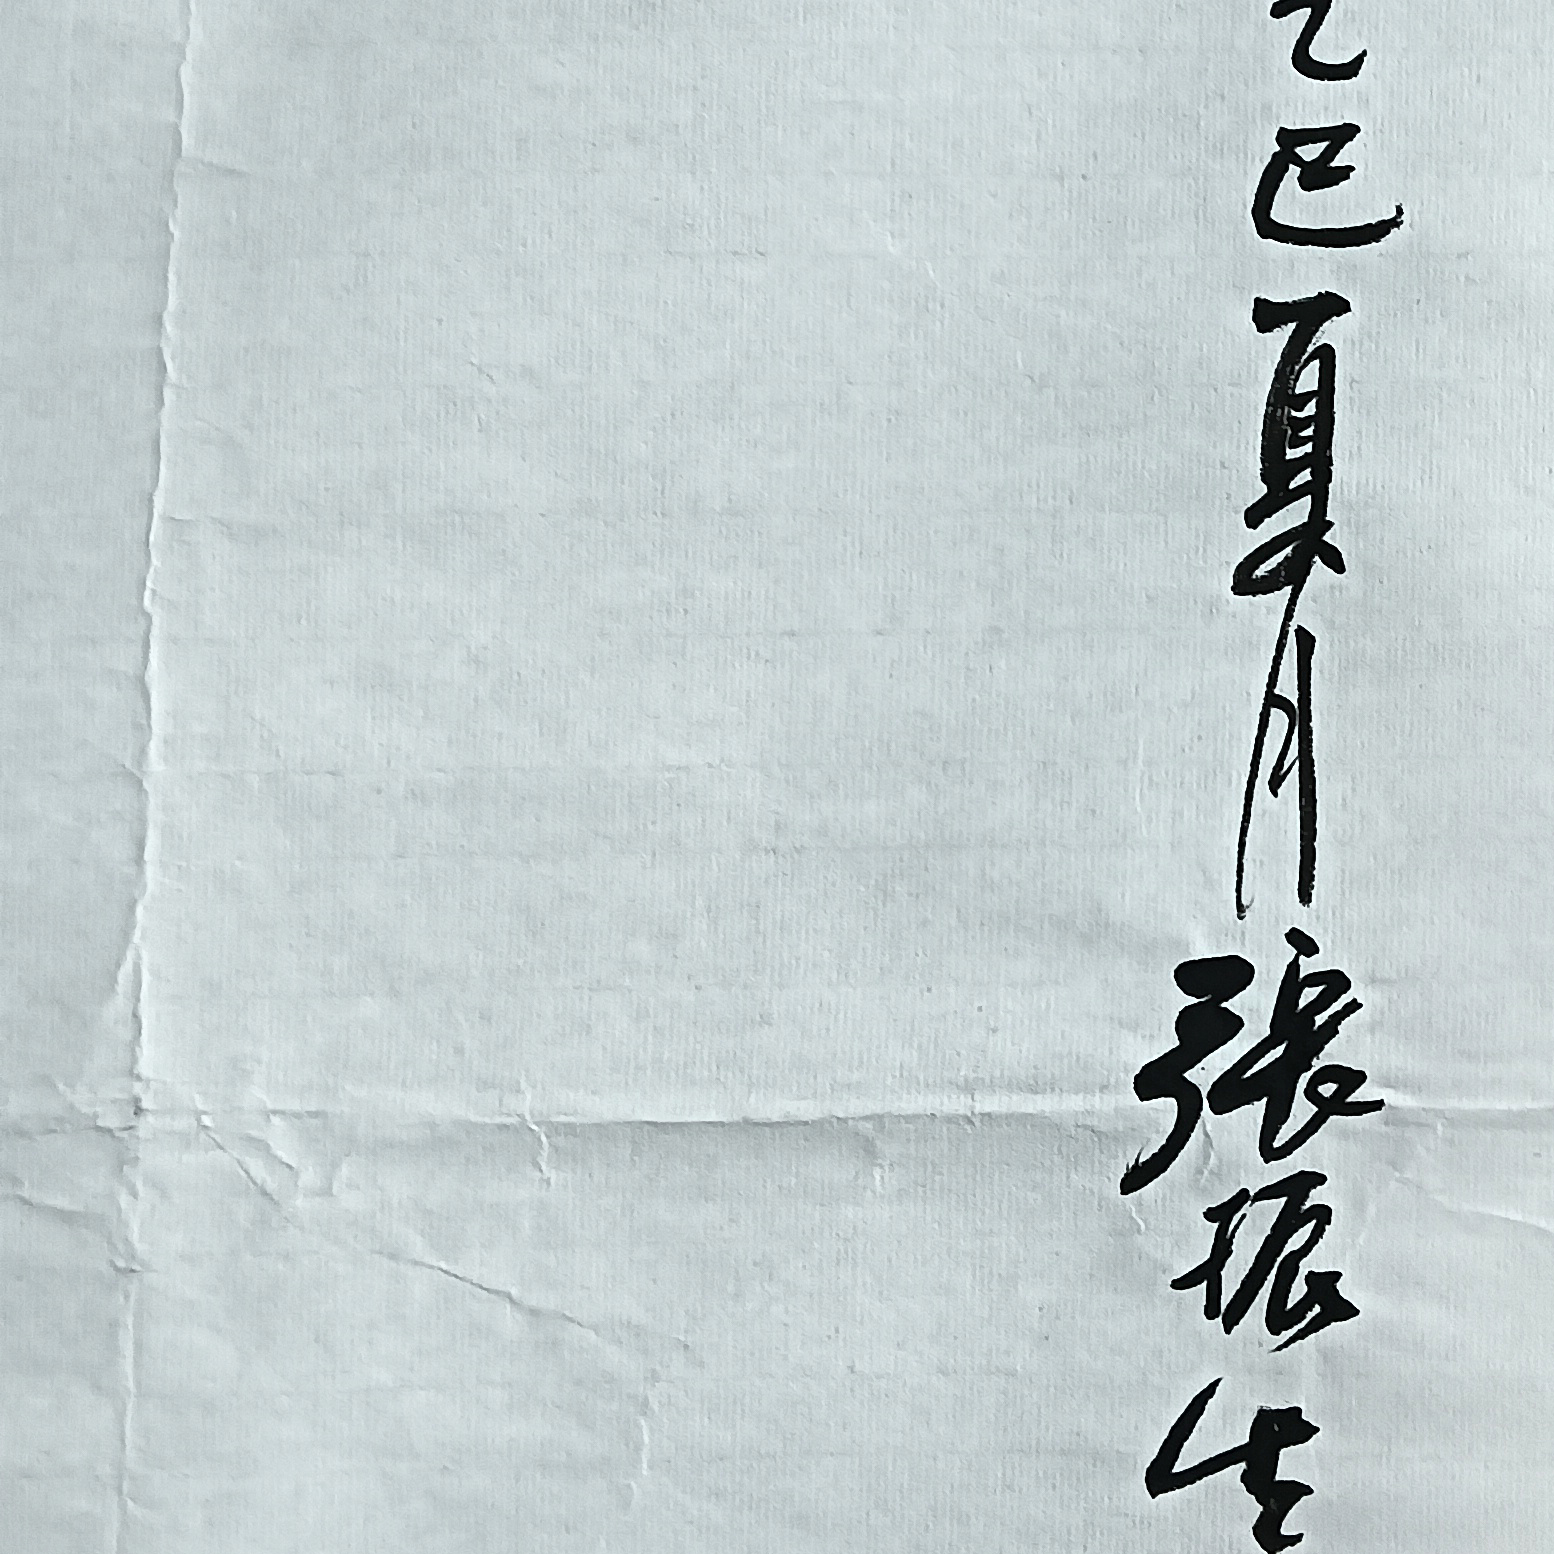 乙巳夏月張振生